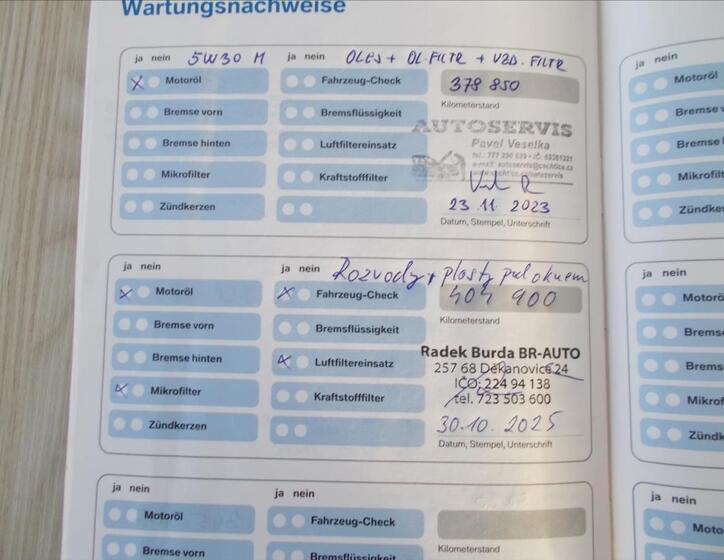 Wartungsnachweise
ja nein 5W30 M ja nein OLEJ + OL.FILTR + VZD. FILTR
Motoröl Fahrzeug-Check 378 850
Kilometerstand
Bremse vorn Bremsflüssigkeit
AUTOSERVIS
Pavel Veselka
Bremse hinten Luftfiltereinsatz
Mikrofilter Kraftstofffilter
Zündkerzen 23.11.2023
Datum, Stempel, Unterschrift
ja nein ja nein Rozvody, plasty pod oknem
Motoröl Fahrzeug-Check 404 900
Kilometerstand
Bremse vorn Bremsflüssigkeit
Radek Burda BR-AUTO
Bremse hinten Luftfiltereinsatz
257 68 Dekanovice 24
IČO: 224 94 138
Mikrofilter Kraftstofffilter
tel. 723 503 600
Zündkerzen 30.10.2025
Datum, Stempel, Unterschrift
ja nein ja nein
Motoröl Fahrzeug-Check
Kilometerstand
Bremse vorn Bremsflüssigkeit
ja nein
Motoröl
Bremse
Bremse
Mikrofilt
Zündke
ja nein
Motorö
Bremse
Bremse
Mikrof
Zündk
ja nein
Moto
Brem